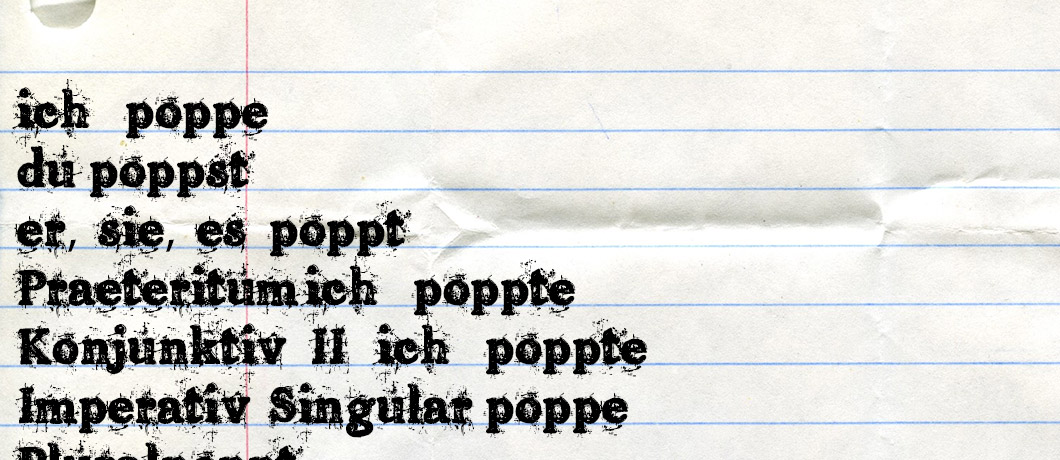 ich poppe
du poppst
er, sie, es poppt
Praeteritumich poppte
Konjunktiv II ich poppte
Imperativ Singular poppe